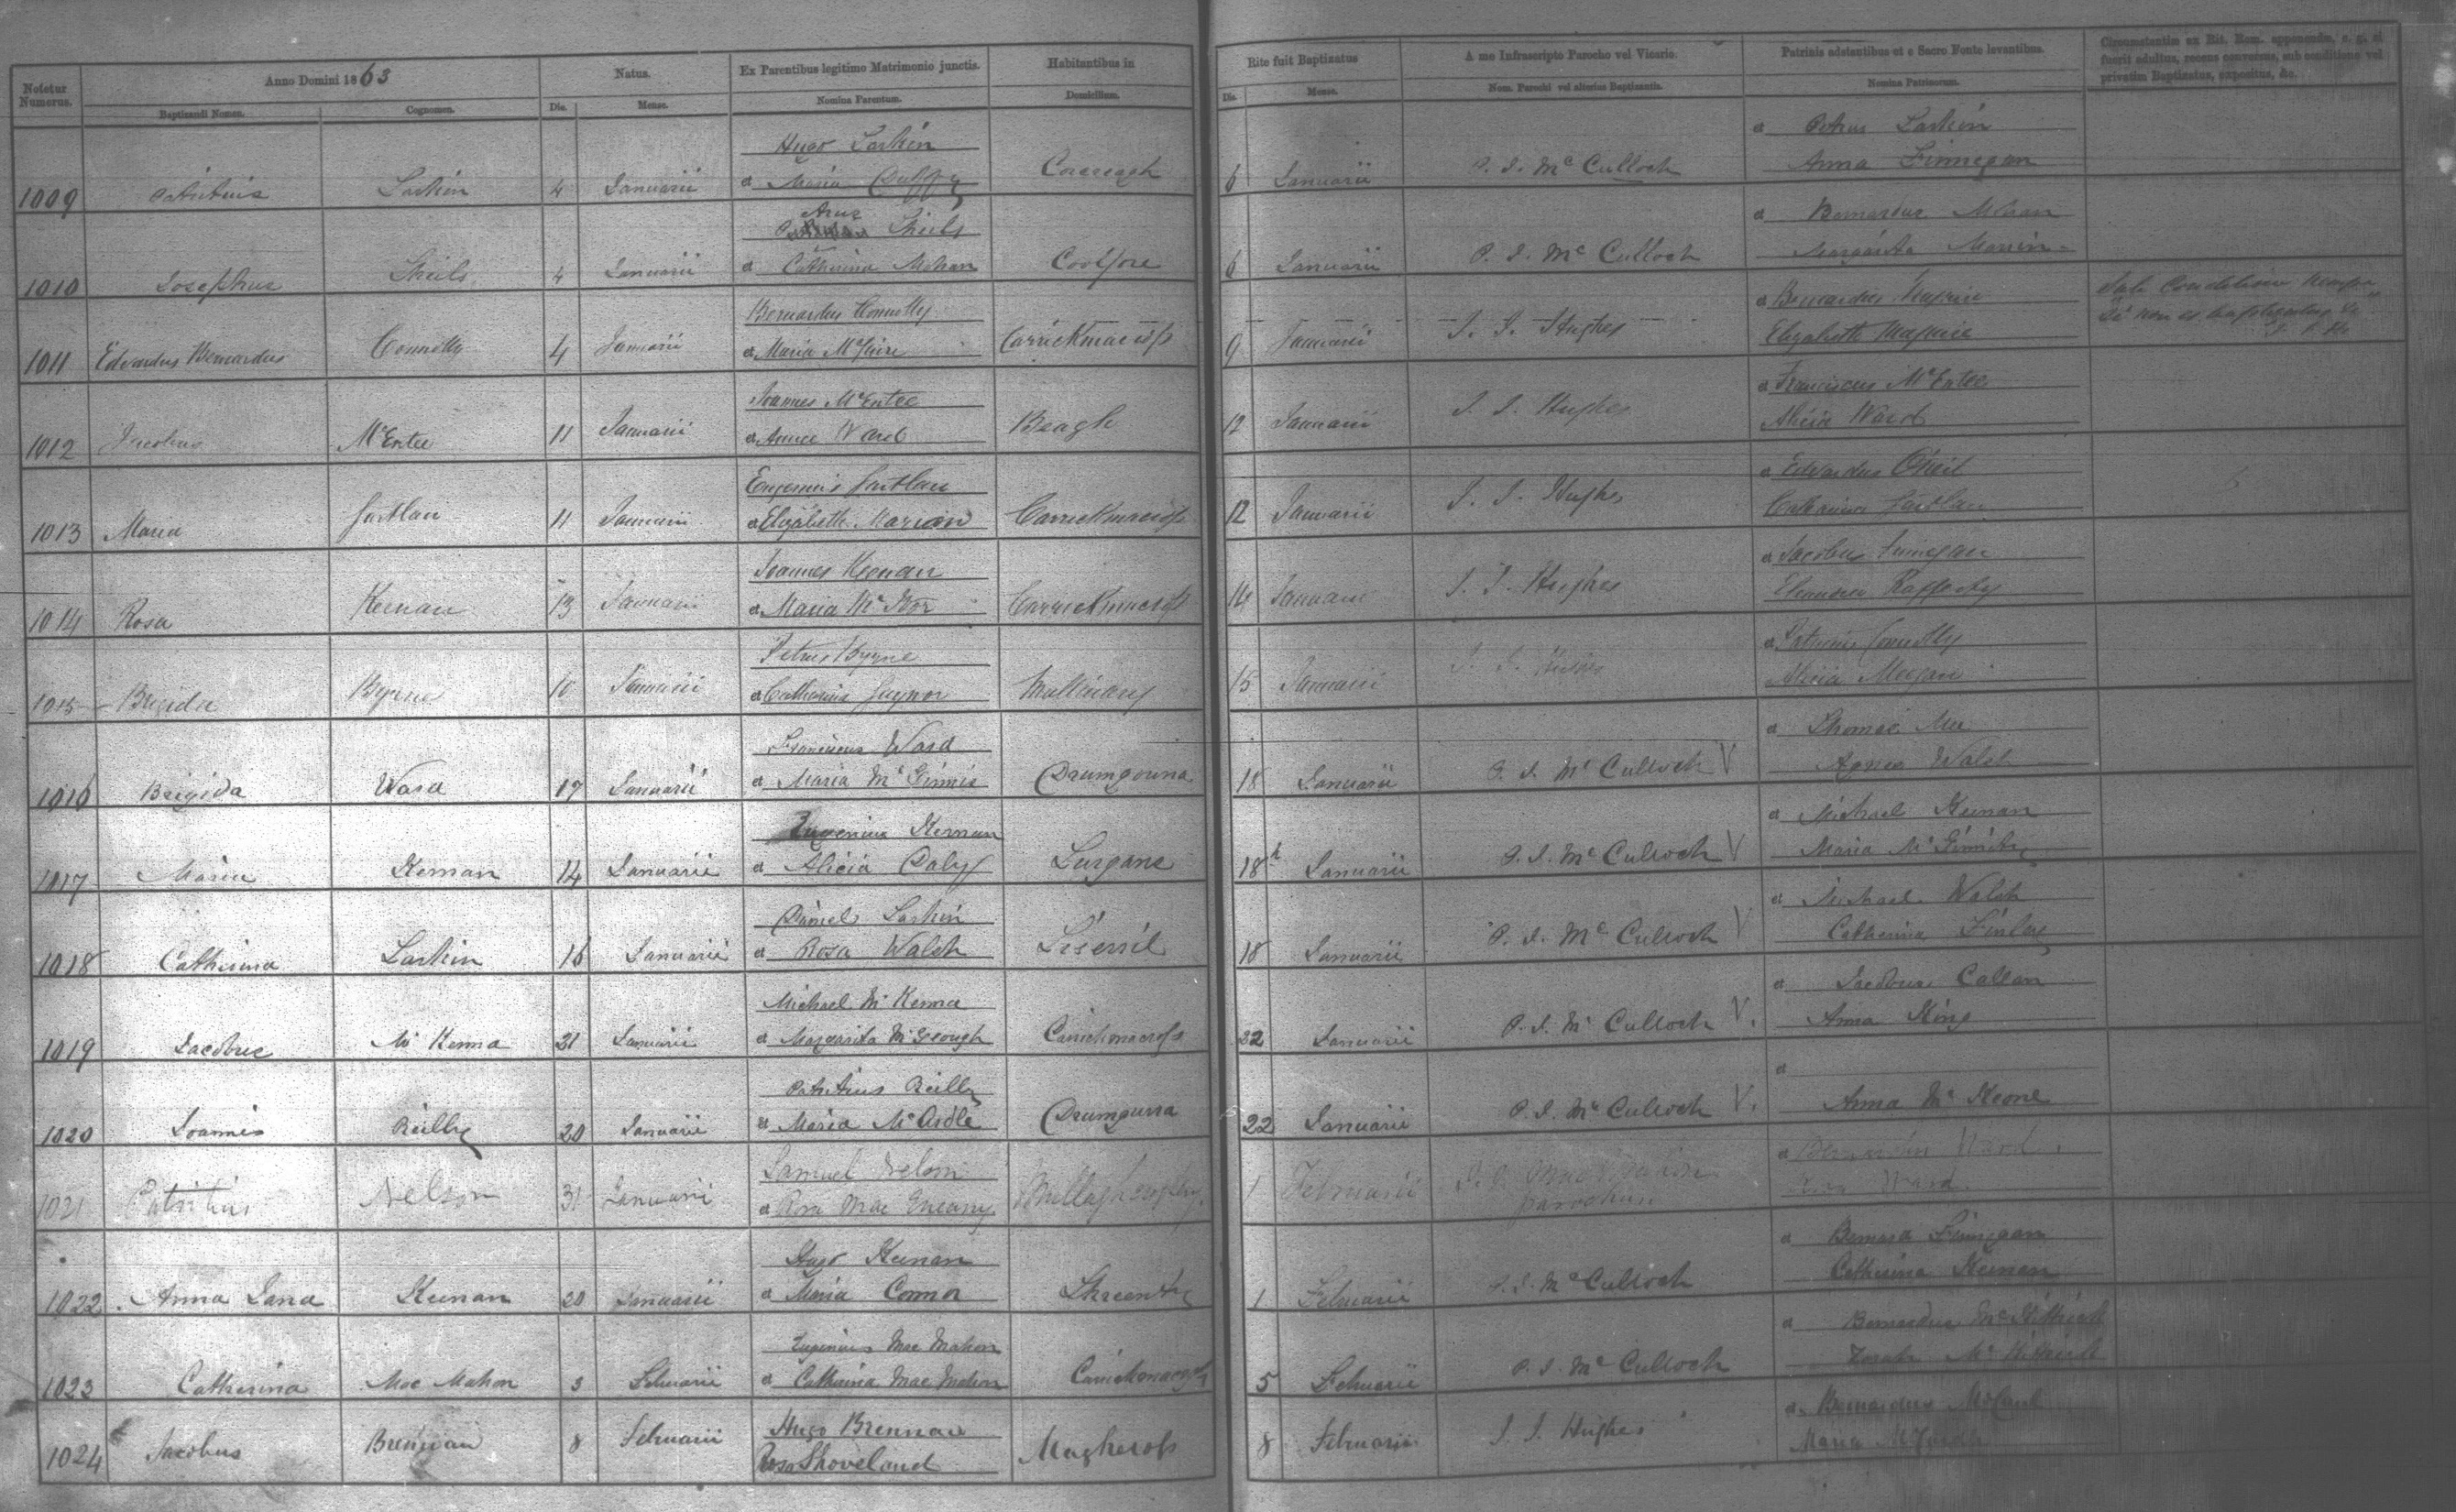 Notetur Numerus.
Anno Domini 1863
Baptizandi Nomen.
Cognomen.
Natus.
Die.
Mense.
Ex Parentibus legitimo Matrimonio junctis.
Nomina Parentum.
Habitantibus in
Domicilium.
Rite fuit Baptizatus
Die.
Mense.
A me Infrascripto Parocho vel Vicario.
Nom. Parochi vel alterius Baptizantis.
Patrinis adstantibus et e Sacro Fonte levantibus.
Nomina Patrinorum.
Circumstantiæ ex Rit. Rom. apponendæ, e. g. si
fuerit adultus, recens conversus, sub conditione vel
privatim Baptizatus, expositus, &c.
Hugo Larkin
Petrus Larkin
1009 Patritius Larkin 4 Januarii et Maria Duffy Corcreagh 6 Januarii P. J. McCulloch et Anna Finnegan
Sheils
Bernardus Mohan
1010 Josephus Sheils 4 Januarii et Catherina Mohan Cootfore 6 Januarii P. J. McCulloch et Margarita
Bernardus Connolly
Bernardus Maguire
Sub Conditione
Si non es baptizatus
1011 Edvardus Bernardus Connolly 4 Januarii et Maria McGuire Carrickmacross 9 Januarii J. J. Hughes et Elizabeth Maguire
Joannes McEntee
Franciscus McEntee
1012 Jacobus McEntee 11 Januarii et Annee Ward Beagh 12 Januarii J. J. Hughes et Alicia Ward
Eugenius Gartlan
Edwardus O'Neil
1013 Maria Gartlan 11 Januarii et Elizabeth Marion Carrickmacross 12 Januarii J. J. Hughes et Catharina Gartlan
Joannes Keenan
Jacobus Finnegan
1014 Rosa Kernan 13 Januarii et Maria Carrickmacross 14 Januarii J. J. Hughes et Eleanora Rafferty
Petrus Byrne
Patricius Connolly
1015 Brigida Byrne 10 Januarii et Catharina Gaynor Mullinary 15 Januarii J. J. Hughes et Alicia Meegan
Franciscus Ward
Thomas
1016 Brigida Ward 17 Januarii et Maria McGinnis Drumgowna 18 Januarii P. J. McCulloch V et Agnes Walsh
Eugenius Kernan
Michael Keenan
1017 Maria Kernan 14 Januarii et Alicia Daly Lurgans 18 Januarii P. J. McCulloch V et Maria
Daniel Larkin
Michael Walsh
1018 Catherina Larkin 16 Januarii et Rosa Walsh Liseriil 18 Januarii P. J. McCulloch V et Catherina Finlay
Michael McKenna
Jacobus Callan
1019 Jacobus McKenna 21 Januarii et Margarita McGeough Carrickmacross 22 Januarii P. J. McCulloch V. et Anna King
Patritius Reilly
1020 Joannis Reilly 20 Januarii et Maria McArdle Drumgurra 22 Januarii P. J. McCulloch V. et Anna McKeone
Samuel Nelson
Ward
1021 Patritius Nelson 31 Januarii et Rosa Mac Eneany 1 Februarii parochus et Ward
Hugo Keenan
Bernard Finnegan
1022 Anna Jana Keenan 20 Januarii et Maria Connor Shreenty 1 Februarii P. J. McCulloch et Catherina Keenan
Eugenius Mac Mahon
Bernardus McKittrick
1023 Catherina Mac Mahon 3 Februarii et Catharina Mac Mahon Carrickmacross 5 Februarii P. J. McCulloch et
Hugo Brennan
Bernardus McCaul
1024 Jacobus Brennan 8 Februarii Rosa Shoveland Magheross 8 Februarii J. J. Hughes et Maria